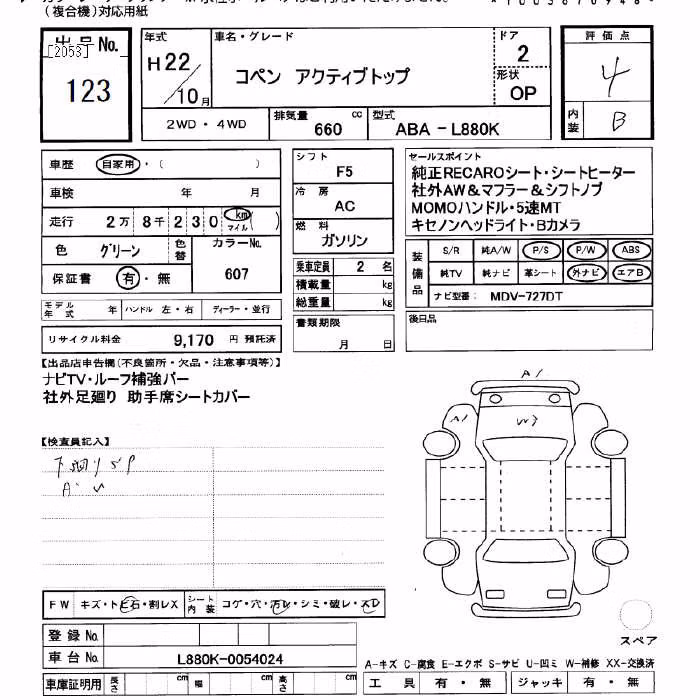 (複合機)対応用紙
出品No.
[2053]
123
年式
H22/10月
車名・グレード
コペン アクティブトップ
ドア
2
形状
OP
評価点
4
内装
B
2WD・4WD
排気量 660 cc
型式 ABA-L880K
車歴 自家用・( )
車検 年 月
走行 2万8千230 km マイル ( )
色 グリーン 色替
カラーNo. 607
保証書 有・無
シフト
F5
冷房
AC
燃料
ガソリン
乗車定員 2 名
積載量 kg
総重量 kg
書類期限
月 日
セールスポイント
純正RECAROシート・シートヒーター
社外AW&マフラー&シフトノブ
MOMOハンドル・5速MT
キセノンヘッドライト・Bカメラ
装備品
S/R 純A/W P/S P/W ABS
純TV 純ナビ 革シート 外ナビ エアB
ナビ型番: MDV-727DT
後日品
モデル年式 年 ハンドル 左・右 ディーラー・並行
リサイクル料金 9,170 円 預託済
【出品店申告欄(不良箇所・欠品・注意事項等)】
ナビTV・ルーフ補強バー
社外足廻り 助手席シートカバー
【検査員記入】
下廻りSP
A・W
A1
A1
W3
FW キズ・トビ石・割レX シート内装 コゲ・穴・汚レ・シミ・破レ・スレ
登録No.
車台No. L880K-0054024
車庫証明用 長さ cm 幅 cm 高さ cm
スペア
A-キズ C-腐食 E-エクボ S-サビ U-凹ミ W-補修 XX-交換済
工具 有・無 ジャッキ 有・無